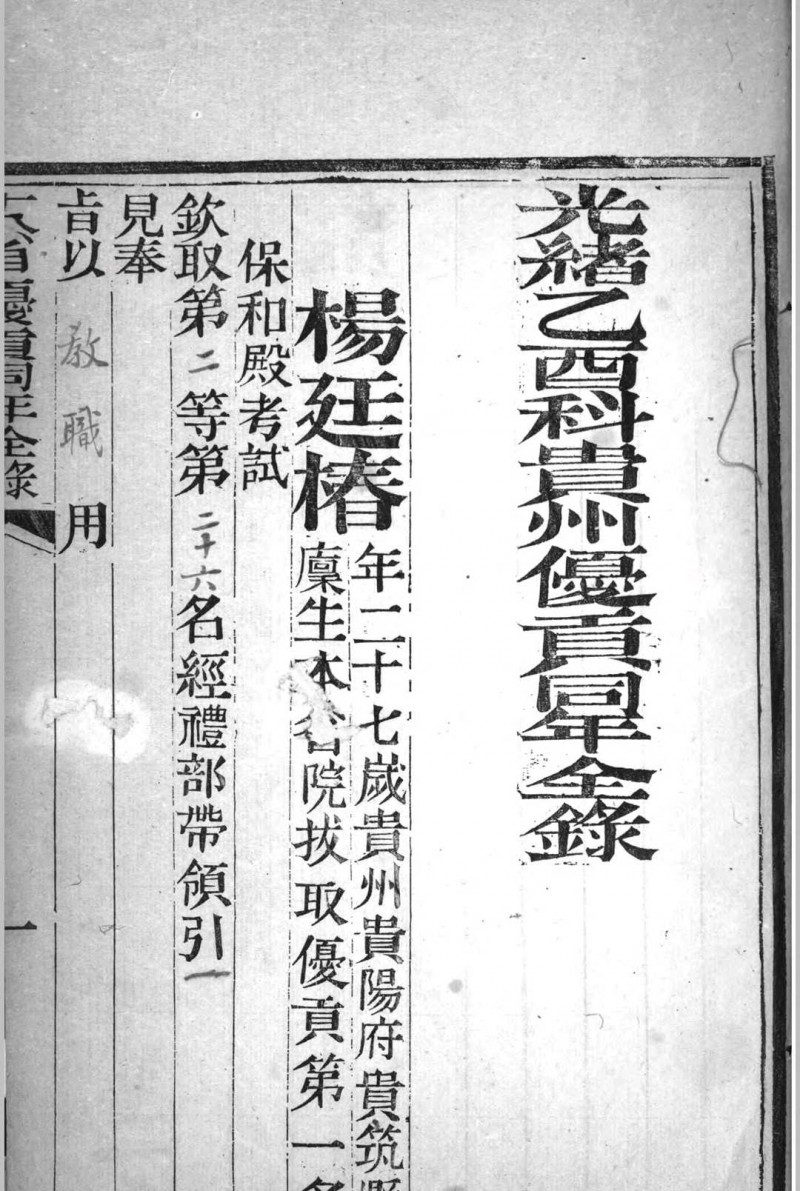 光緒乙酉科貴州優貢同年全錄
楊廷椿
年二十七歲貴州貴陽府貴筑縣
廩生本省院拔取優貢第一名
保和殿考試
欽取第二等第二十六名經禮部帶領引
見奉
旨以教職用
優貢同年全錄
一